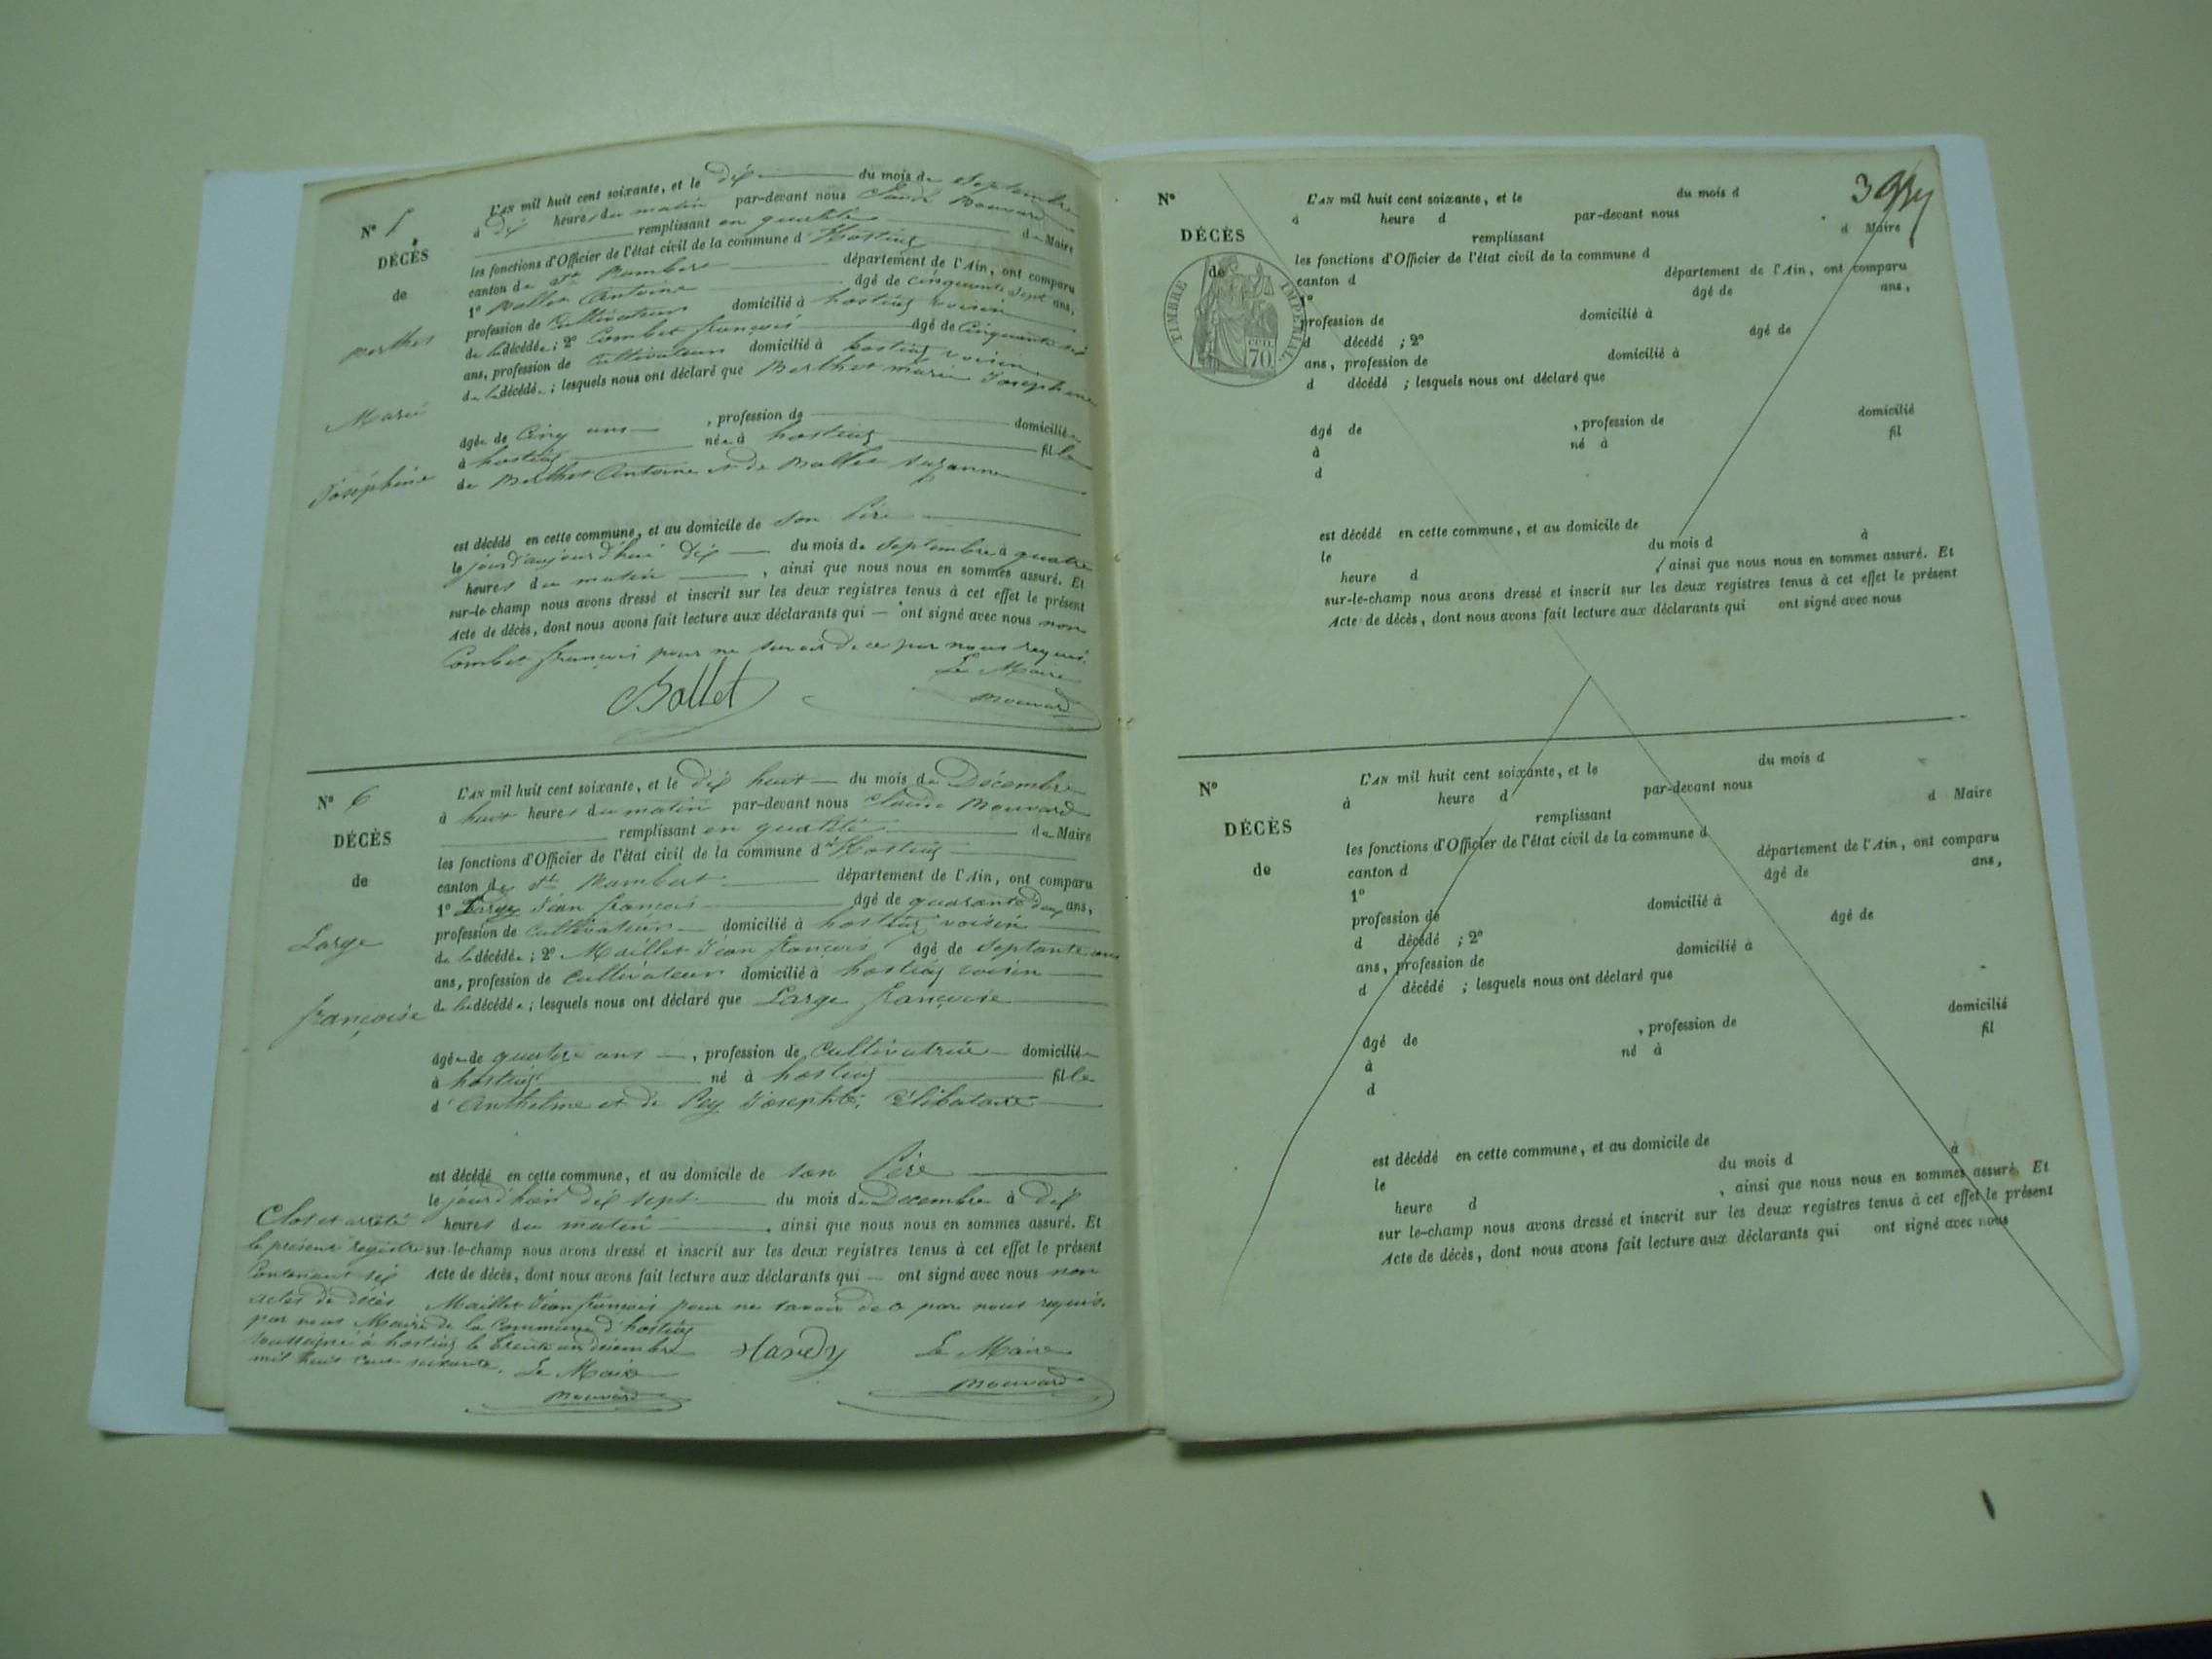 N° 5
DÉCÈS
de
Berthet
Marie
Joséphine
L'AN mil huit cent soixante, et le dix du mois de Septembre
à dix heures du matin par-devant nous Claude Bouvard
remplissant en qualité de Maire
les fonctions d'Officier de l'état civil de la commune d'hostiaz
canton de St Rambert département de l'Ain, ont comparu
1° Ballet Antoine âgé de cinquante sept ans,
profession de Cultivateur domicilié à hostiaz voisin
de la décédée; 2° Combet françois âgé de Cinquante six
ans, profession de Cultivateur domicilié à hostiaz voisin
de la décédée; lesquels nous ont déclaré que Berthet marie Josephine
âgée de Cinq ans, profession de domiciliée
à hostiaz née à hostiaz fille
de Berthet Antoine et de Ballet Suzanne
est décédé en cette commune, et au domicile de son Père
le jourd'aujourd'hui dix du mois de Septembre à quatre
heures du matin, ainsi que nous nous en sommes assuré. Et
sur-le-champ nous avons dressé et inscrit sur les deux registres tenus à cet effet le présent
Acte de décès, dont nous avons fait lecture aux déclarants qui — ont signé avec nous non
Combet françois pour ne savoir de ce par nous requis.
Le Maire
Ballet
Bouvard
N° 6
DÉCÈS
de
Large
françoise
L'AN mil huit cent soixante, et le dix huit du mois de Décembre
à huit heures du matin par-devant nous Claude Bouvard
remplissant en qualité de Maire
les fonctions d'Officier de l'état civil de la commune d'hostiaz
canton de St Rambert département de l'Ain, ont comparu
1° Large Jean françois âgé de quarante deux ans,
profession de Cultivateur domicilié à hostiaz voisin
de la décédée; 2° Maillet Jean françois âgé de septante
ans, profession de Cultivateur domicilié à hostiaz voisin
de la décédée; lesquels nous ont déclaré que Large françoise
âgée de quatorze ans —, profession de Cultivatrice domiciliée
à hostiaz né à hostiaz fille
d'Anthelme et de Pey Josephte, Célibataire
est décédé en cette commune, et au domicile de son Père
le jour d'hier dix sept du mois de Decembre à dix
heures du matin, ainsi que nous nous en sommes assuré. Et
sur-le-champ nous avons dressé et inscrit sur les deux registres tenus à cet effet le présent
Acte de décès, dont nous avons fait lecture aux déclarants qui — ont signé avec nous non
Maillet Jean françois pour ne savoir de ce par nous requis.
Le Maire
Bouvard
Clos et arrêté
le présent registre
Contenant six
actes de décès
par nous Maire de la Commune d'hostiaz
soussigné à hostiaz le trente un décembre
mil huit cent soixante. Le Maire
Bouvard
3
N°
DÉCÈS
de
TIMBRE IMPÉRIAL.
70
L'AN mil huit cent soixante, et le du mois d
à heure d par-devant nous
remplissant d Maire
les fonctions d'Officier de l'état civil de la commune d
canton d département de l'Ain, ont comparu
1° âgé de ans,
profession de domicilié à
d décédé ; 2° âgé de
ans, profession de domicilié à
d décédé ; lesquels nous ont déclaré que
âgé de , profession de domicilié
à né à fil
d
est décédé en cette commune, et au domicile de
le du mois d à
heure d , ainsi que nous nous en sommes assuré. Et
sur-le-champ nous avons dressé et inscrit sur les deux registres tenus à cet effet le présent
Acte de décès, dont nous avons fait lecture aux déclarants qui ont signé avec nous
N°
DÉCÈS
de
L'AN mil huit cent soixante, et le du mois d
à heure d par-devant nous
remplissant d Maire
les fonctions d'Officier de l'état civil de la commune d
canton d département de l'Ain, ont comparu
1° âgé de ans,
profession de domicilié à
d décédé ; 2° âgé de
ans, profession de domicilié à
d décédé ; lesquels nous ont déclaré que
âgé de , profession de domicilié
à né à fil
d
est décédé en cette commune, et au domicile de
le du mois d à
heure d , ainsi que nous nous en sommes assuré. Et
sur le-champ nous avons dressé et inscrit sur les deux registres tenus à cet effet le présent
Acte de décès, dont nous avons fait lecture aux déclarants qui ont signé avec nous